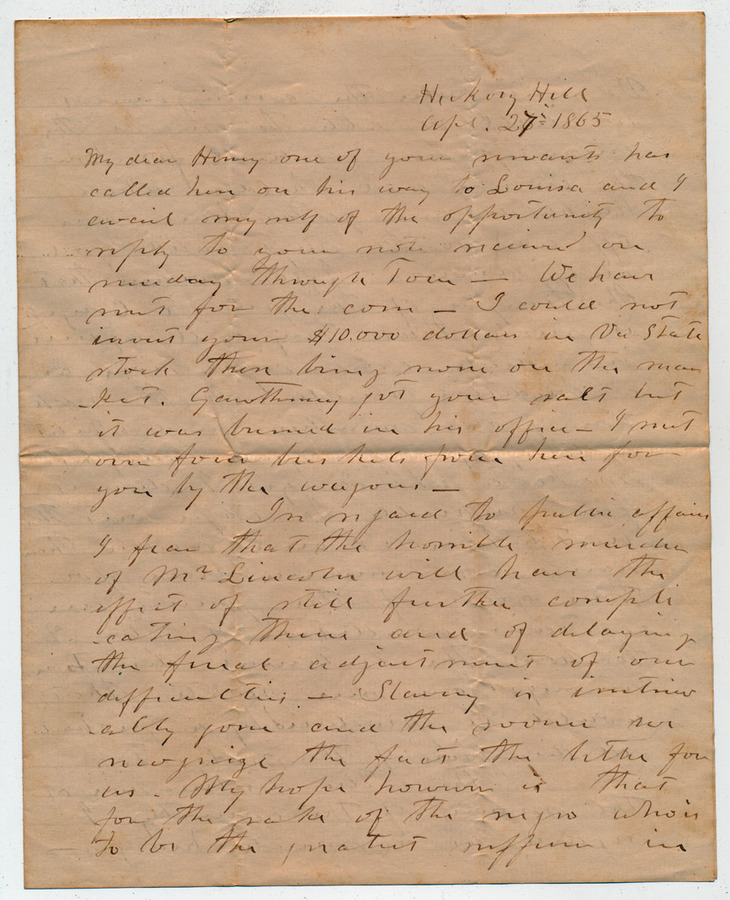 Hickory Hill
Apl. 27th 1865
My dear Henry one of your servants has
called here on his way to Louisa and I
avail myself of the opportunity to
reply to your note received on
through Tom — We have
sent for the corn — I could not
invest your $10.000 dollars in Va State
stock there being none on the mar
-ket. Gawthmey got your salt but
it was burned in his office — I sent
over four bushels from here for
you by the wagons —
In regard to public affairs
I fear that the horrible murder
of Mr Lincoln will have the
effect of still further compli
-cating them and of delaying
the final adjustment of our
difficulties — Slavery is irretriev
ably gone and the sooner we
recognize the fact the better for
us. My hope however is that
for the sake of the negro who is
to be the greatest sufferer in